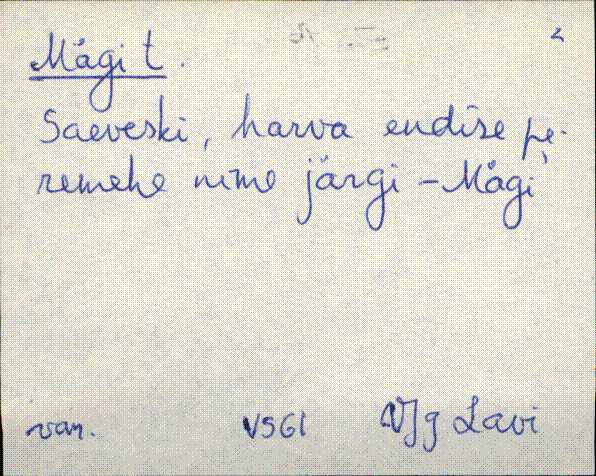 2
Mägi t.
Saeveski, harva endise pe-
remehe nime järgi – Mägi
van. VSGI VJg Lavi